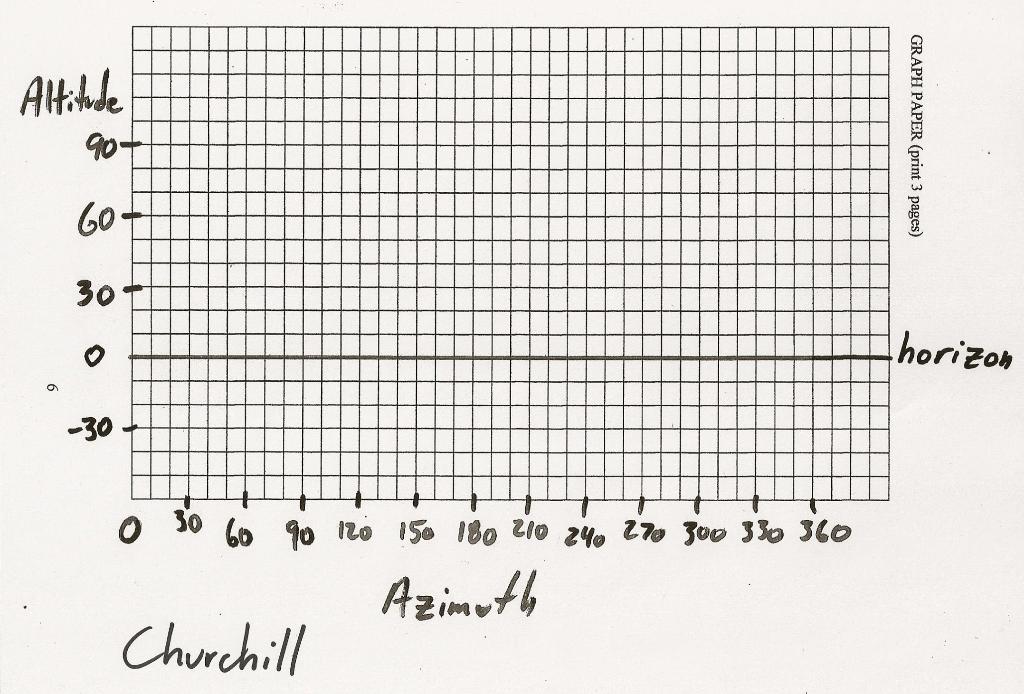 GRAPH PAPER (print 3 pages)
Altitude
90
60
30
0
horizon
-30
6
0 30 60 90 120 150 180 210 240 270 300 330 360
Azimuth
Churchill